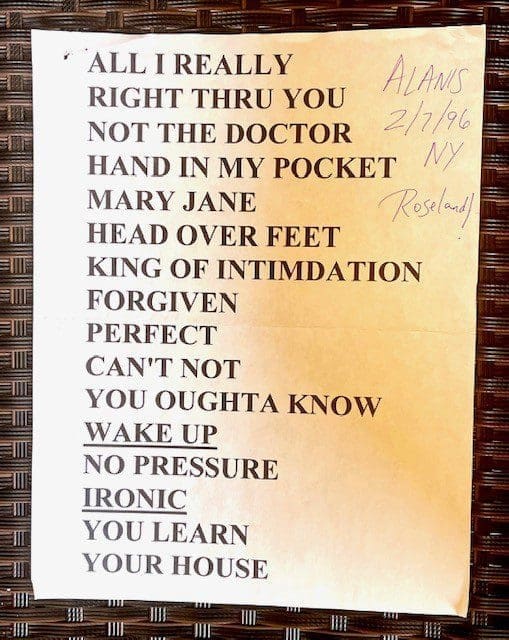 ALL I REALLY
RIGHT THRU YOU
NOT THE DOCTOR
HAND IN MY POCKET
MARY JANE
HEAD OVER FEET
KING OF INTIMDATION
FORGIVEN
PERFECT
CAN'T NOT
YOU OUGHTA KNOW
WAKE UP
NO PRESSURE
IRONIC
YOU LEARN
YOUR HOUSE
ALANIS
2/7/96
NY
Roseland